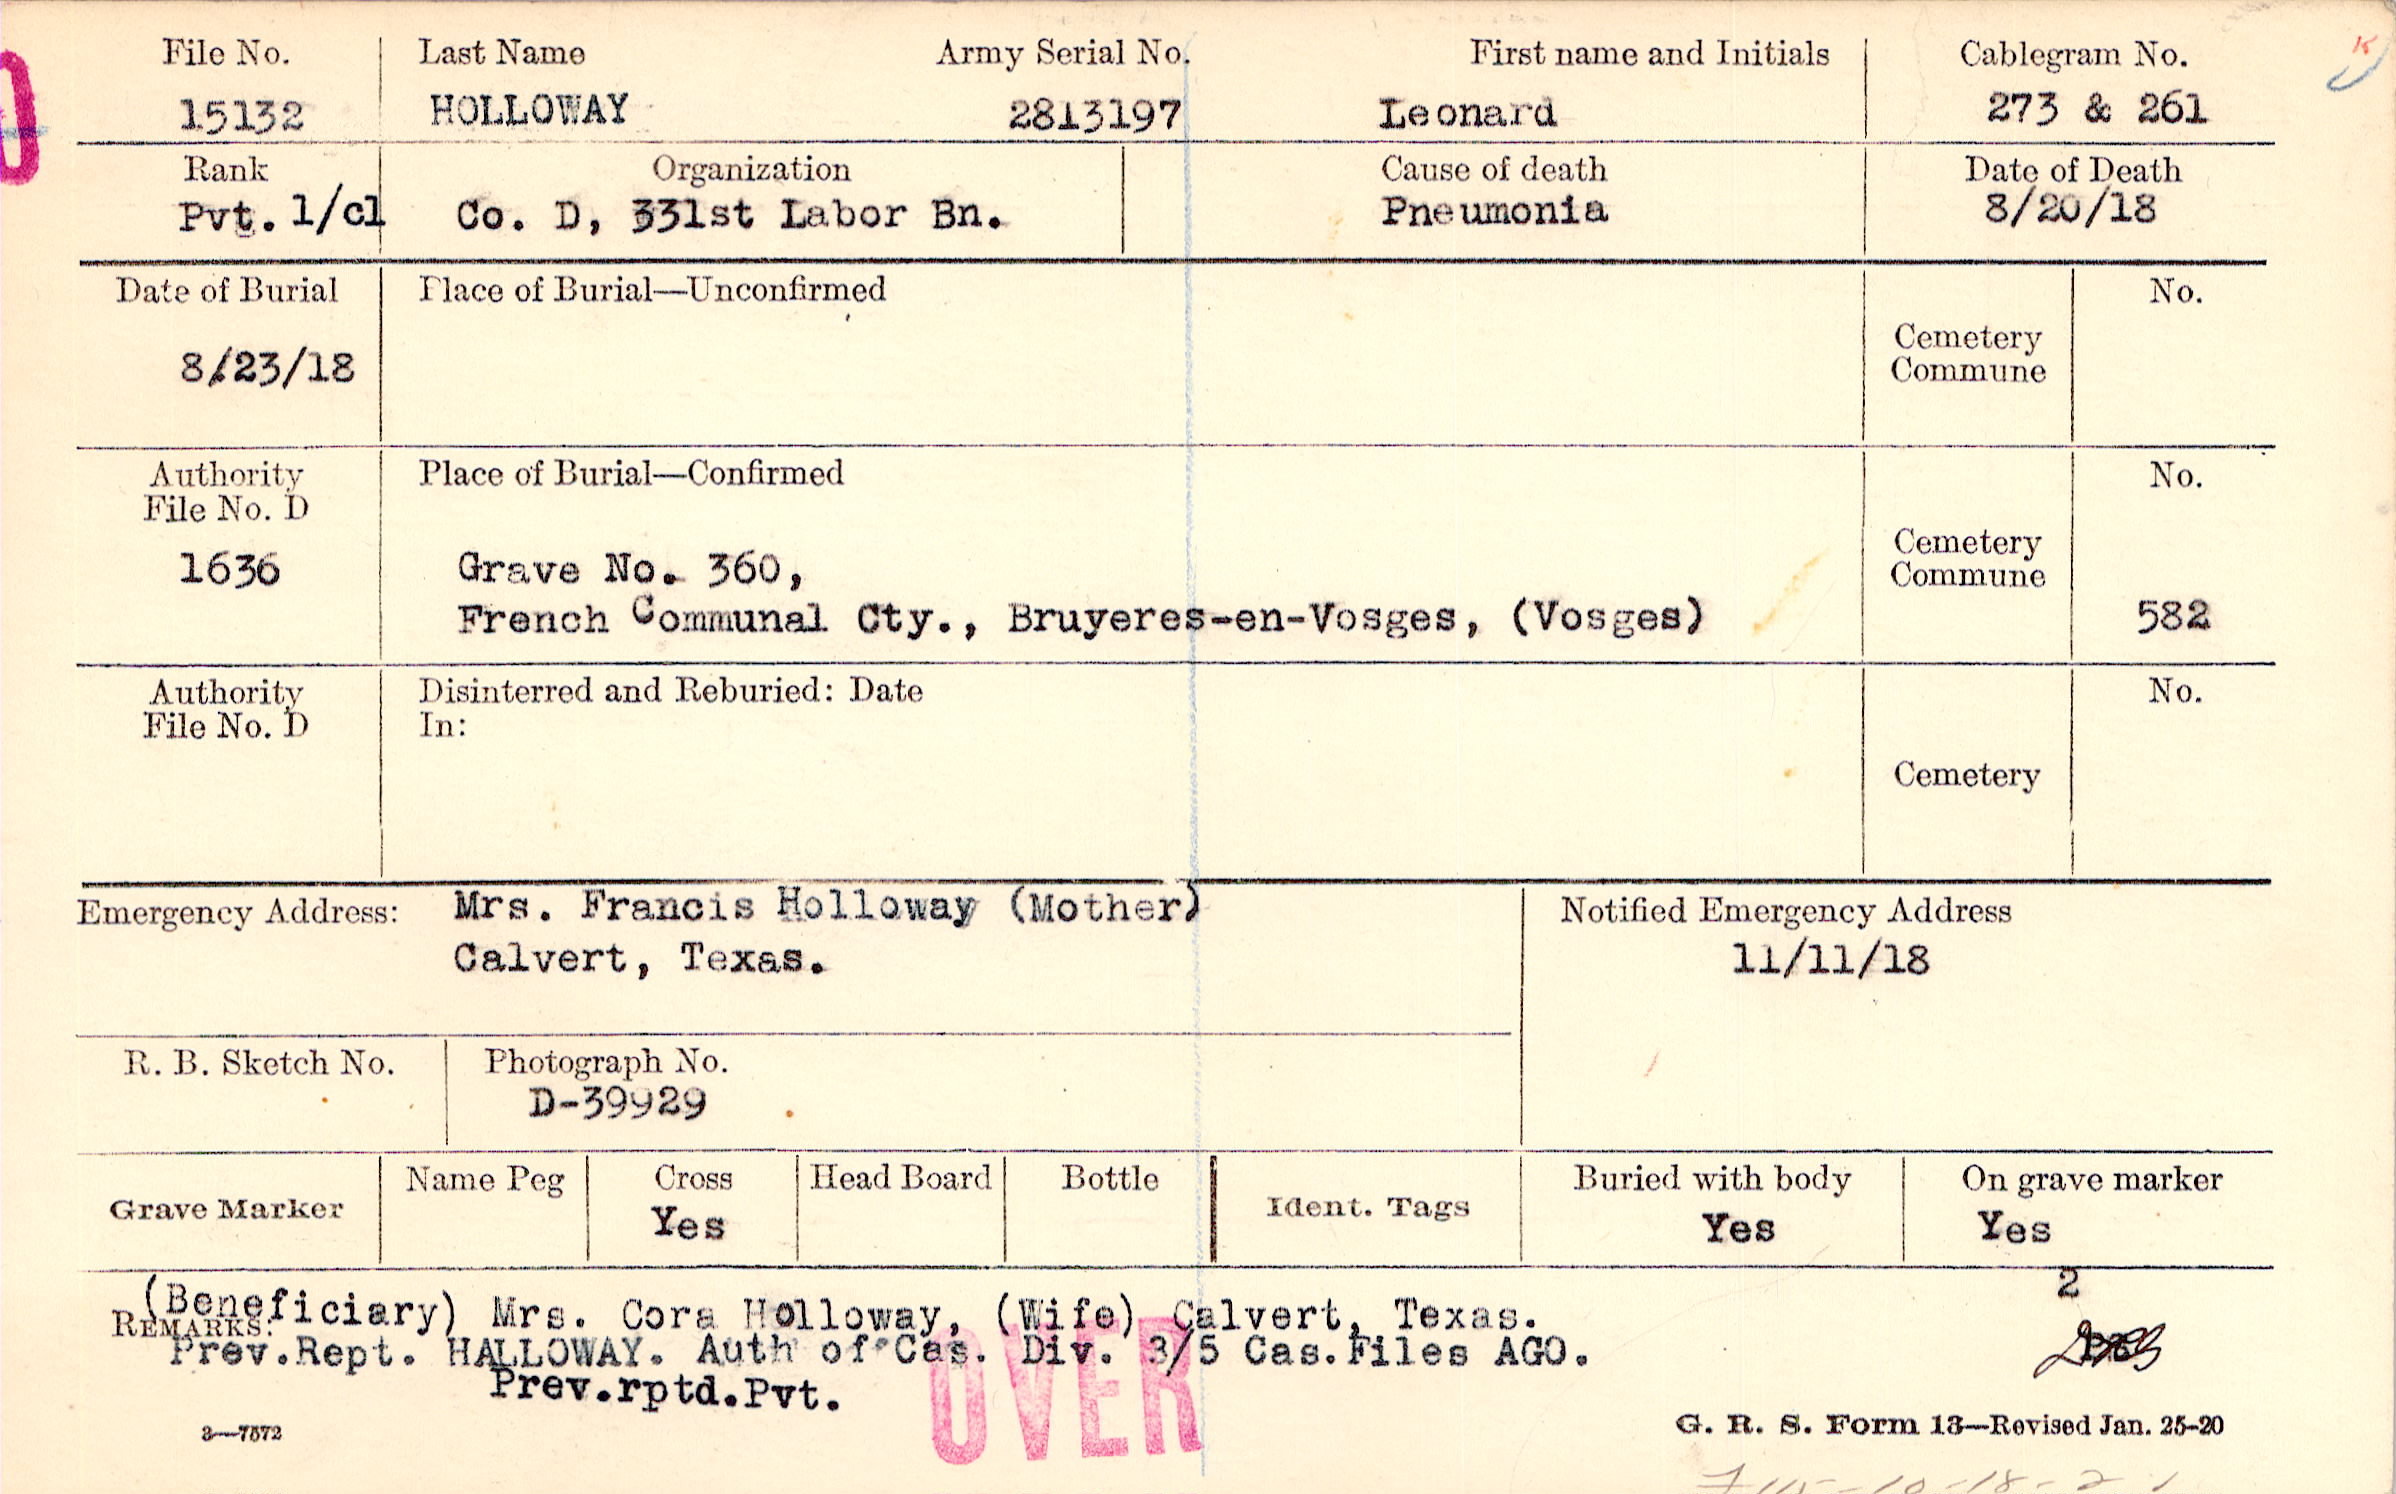 File No. Last Name Army Serial No. First name and Initials Cablegram No.
15132 HOLLOWAY 2813197 Leonard 273 & 261
Rank Organization Cause of death Date of Death
Pvt. 1/cl Co. D, 331st Labor Bn. Pneumonia 8/20/18
Date of Burial Place of Burial—Unconfirmed No.
Cemetery
Commune
8/23/18
Authority Place of Burial—Confirmed No.
File No. D
Cemetery
Commune
1636 Grave No. 360,
French Communal Cty., Bruyeres-en-Vosges, (Vosges) 582
Authority Disinterred and Reburied: Date No.
File No. D In:
Cemetery
Emergency Address: Mrs. Francis Holloway (Mother) Notified Emergency Address
Calvert, Texas. 11/11/18
R. B. Sketch No. Photograph No.
D-39929
Grave Marker Name Peg Cross Head Board Bottle Ident. Tags Buried with body On grave marker
Yes Yes Yes
2
(Beneficiary) Mrs. Cora Holloway, (Wife) Calvert, Texas.
REMARKS:
Prev.Rept. HALLOWAY. Auth of Cas. Div. 3/5 Cas.Files AGO.
Prev.rptd.Pvt.
OVER
3—7572 G. R. S. Form 13—Revised Jan. 25-20